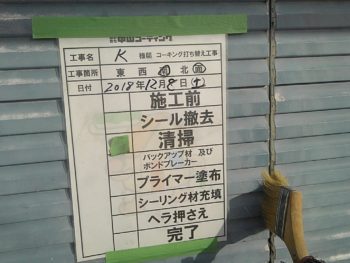 工事名 K 様邸 コーキング打ち替え工事
工事箇所 東 西 南 北 面
日付 2018年12月8日(土)
施工前
シール撤去
清掃
バックアップ材 及び
ボンドブレーカー
プライマー塗布
シーリング材充填
ヘラ押さえ
完了